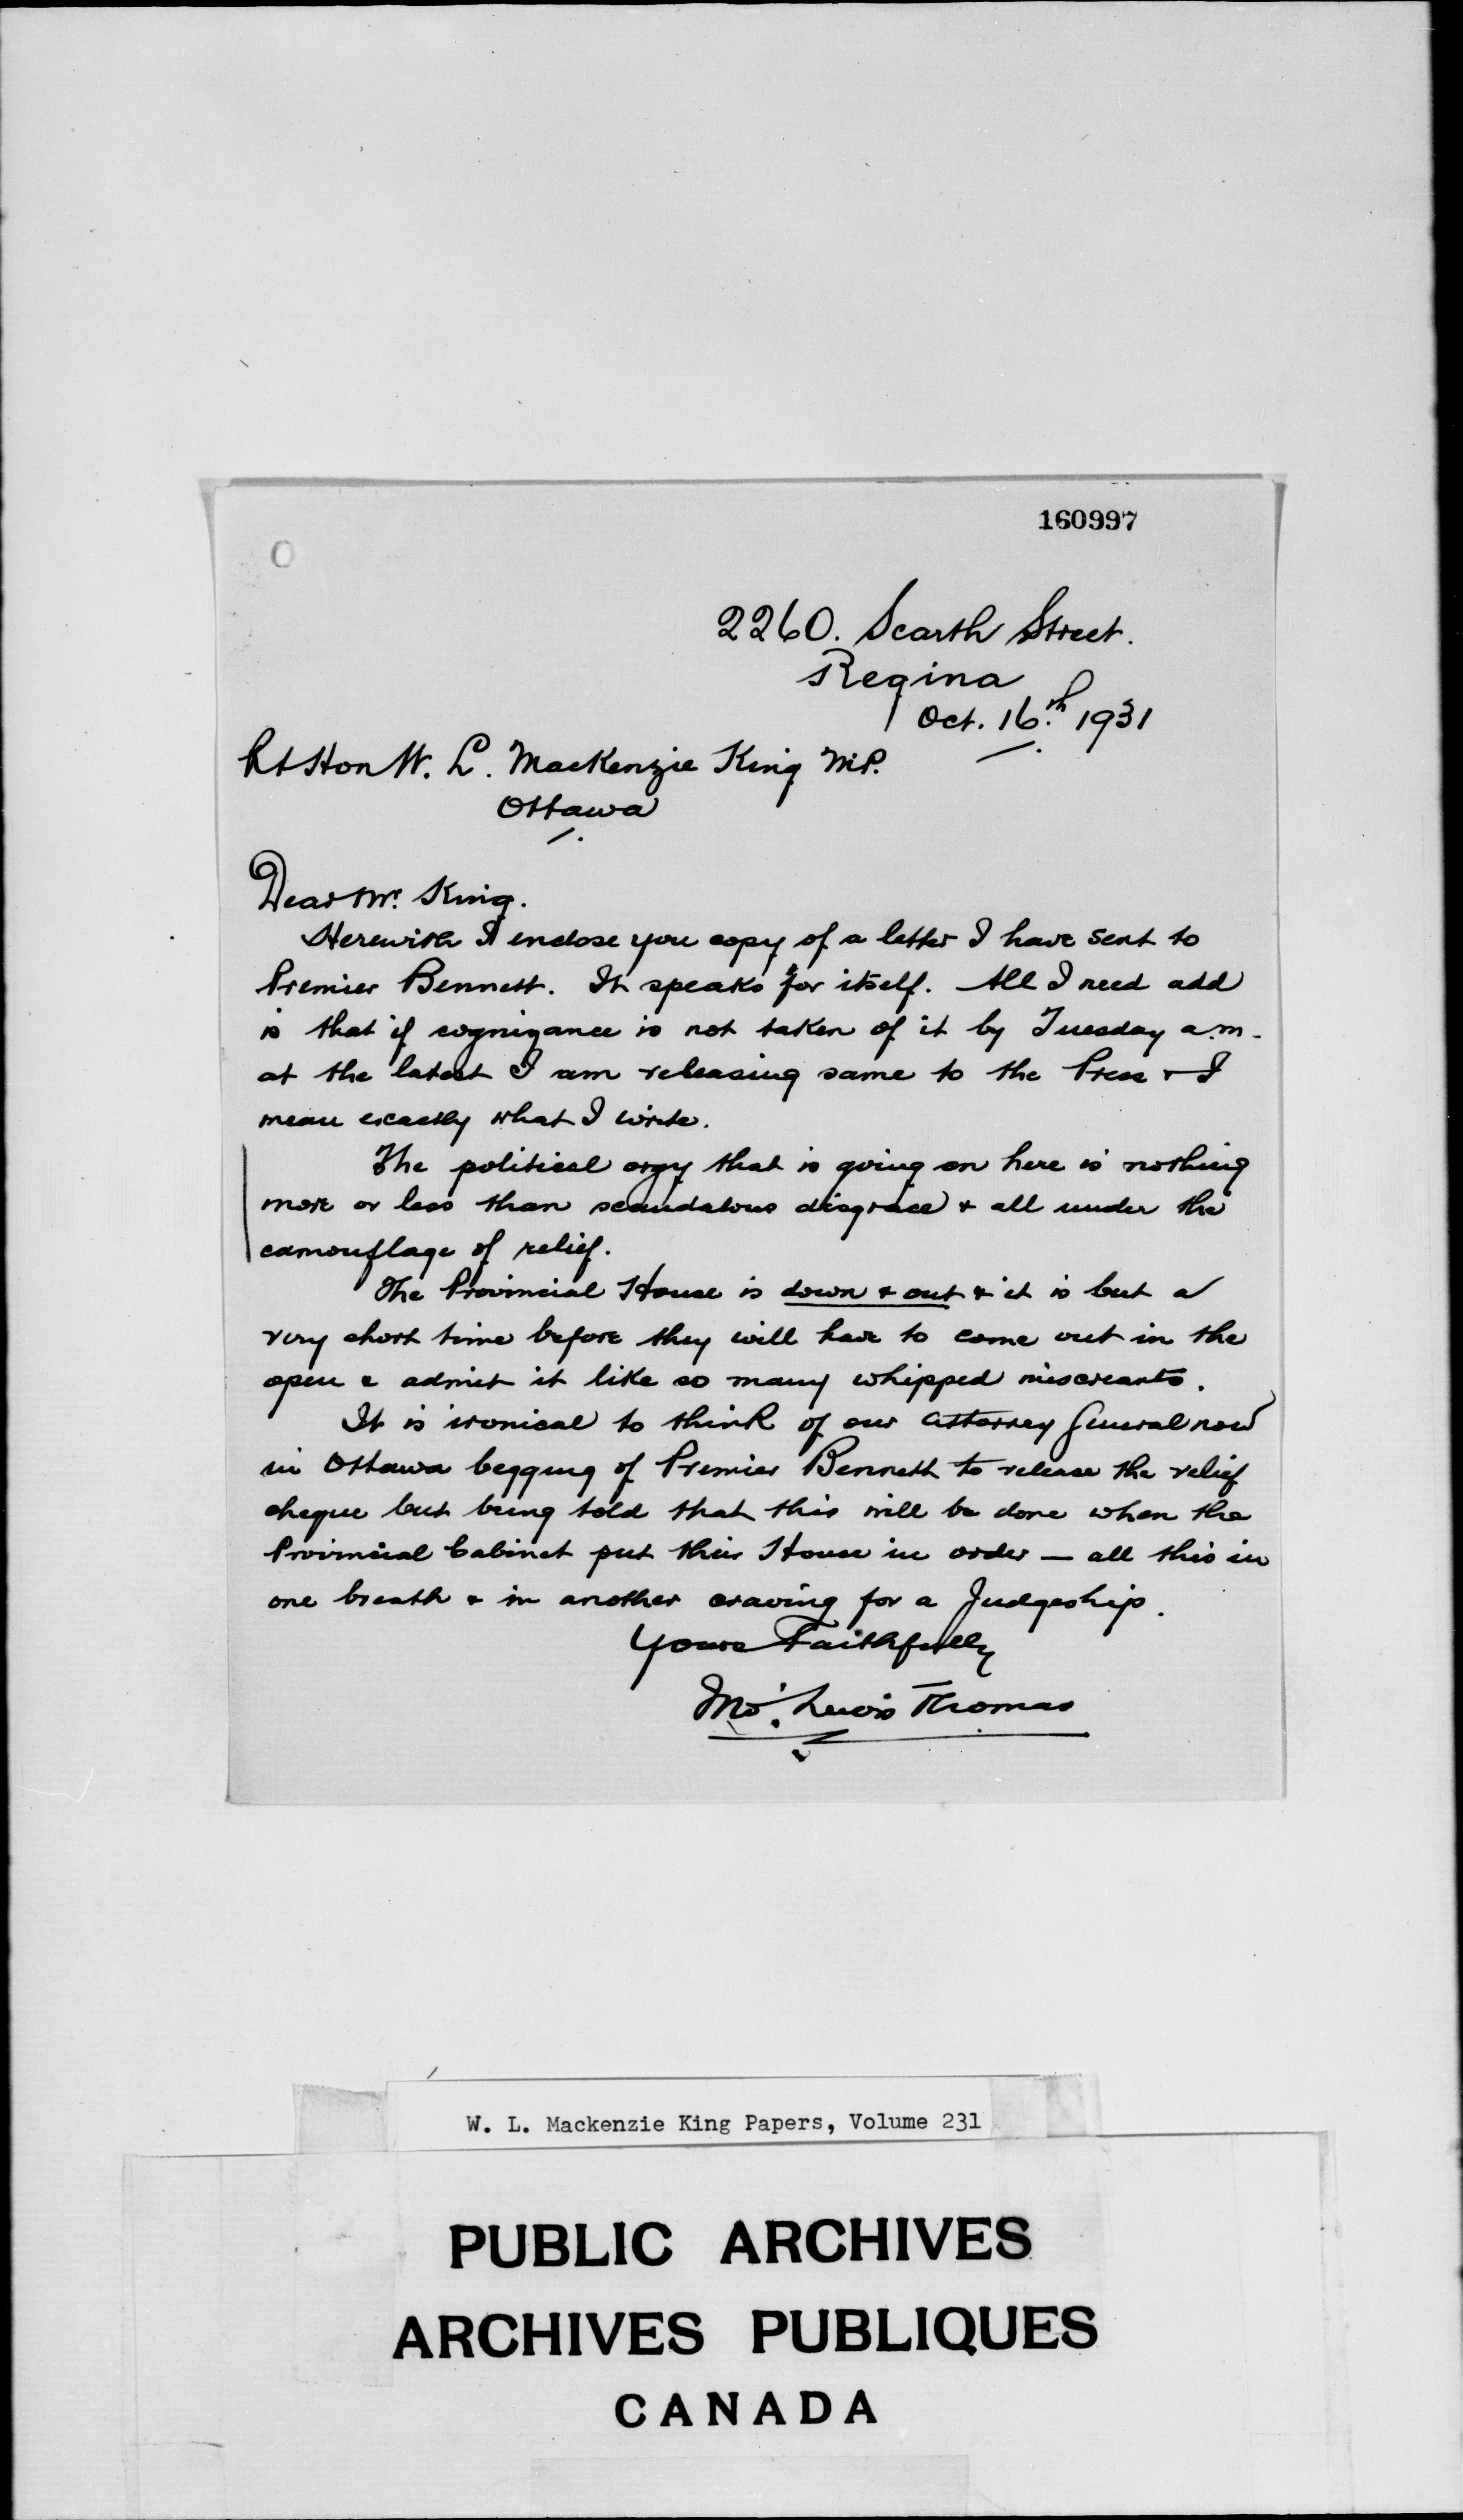 160997
2260. Scarth Street.
Regina
Oct. 16th 1931
Rt Hon W. L. MacKenzie King M.P.
Ottawa
Dear Mr. King.
Herewith I enclose you copy of a letter I have sent to
Premier Bennett. It speaks for itself. All I need add
is that if cognizance is not taken of it by Tuesday a.m.
at the latest I am releasing same to the Press & I
mean exactly what I write.
The political orgy that is going on here is nothing
more or less than scandalous disgrace & all under the
camouflage of relief.
The Provincial House is down & out & it is but a
very short time before they will have to come out in the
open & admit it like so many whipped miscreants.
It is ironical to think of our Attorney General now
in Ottawa begging of Premier Bennett to release the relief
cheque but being told that this will be done when the
Provincial Cabinet put their House in order — all this in
one breath & in another craving for a Judgeship.
Yours Faithfully
Lewis Thomas
W. L. Mackenzie King Papers, Volume 231
PUBLIC ARCHIVES
ARCHIVES PUBLIQUES
CANADA